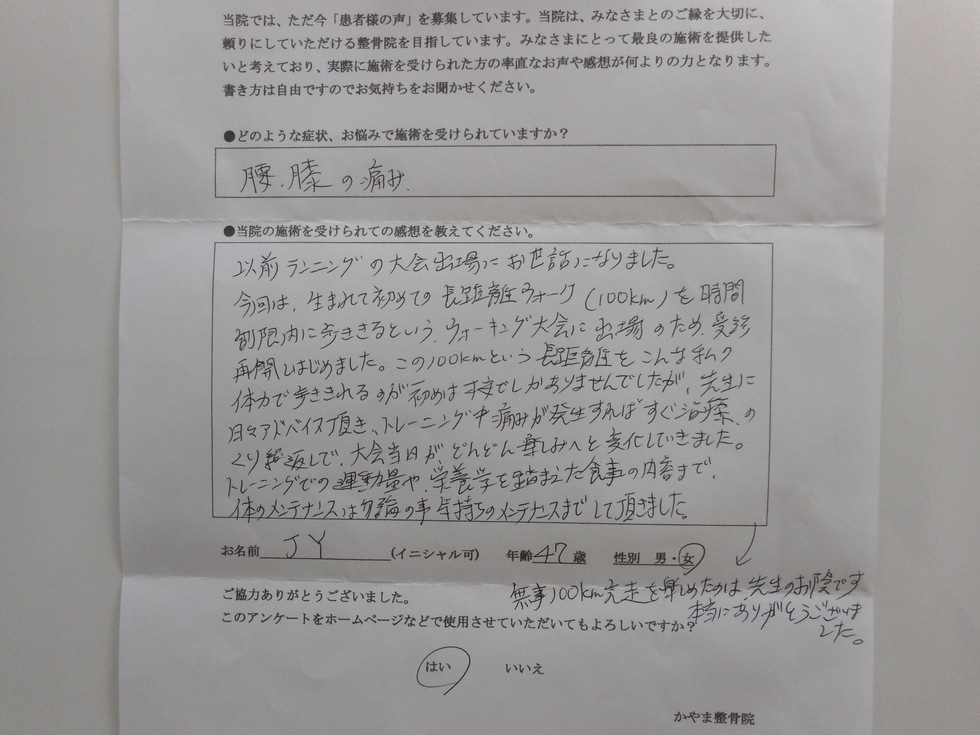 当院では、ただ今「患者様の声」を募集しています。当院は、みなさまとのご縁を大切に、
頼りにしていただける整骨院を目指しています。みなさまにとって最良の施術を提供した
いと考えており、実際に施術を受けられた方の率直なお声や感想が何よりの力となります。
書き方は自由ですのでお気持ちをお聞かせください。
●どのような症状、お悩みで施術を受けられていますか？
腰、膝の痛み、
●当院の施術を受けられての感想を教えてください。
以前ランニングの大会出場にお世話になりました。
今回は、生まれて初めての長距離ウォーク(100km)を時間
制限内に歩ききるという、ウォーキング大会に出場のため、受診
再開しはじめました。この100kmという長距離をこんな私の
体力で歩ききれるのが初めは不安でしかありませんでしたが、先生に
日々アドバイス頂き、トレーニング中痛みが発生すればすぐ治療、の
くり繰返しで、大会当日が、どんどん楽しみへと変化していきました。
トレーニングでの運動量や、栄養学を踏まえた食事の内容まで、
体のメンテナンスは勿論の事 気持ちのメンテナンスまでして頂きました。
お名前 JY (イニシャル可) 年齢 47 歳 性別 男・女
無事100km完走を楽しめたのは、先生のお陰です
本当にありがとうございま
した。
ご協力ありがとうございました。
このアンケートをホームページなどで使用させていただいてもよろしいですか？
はい いいえ
かやま整骨院